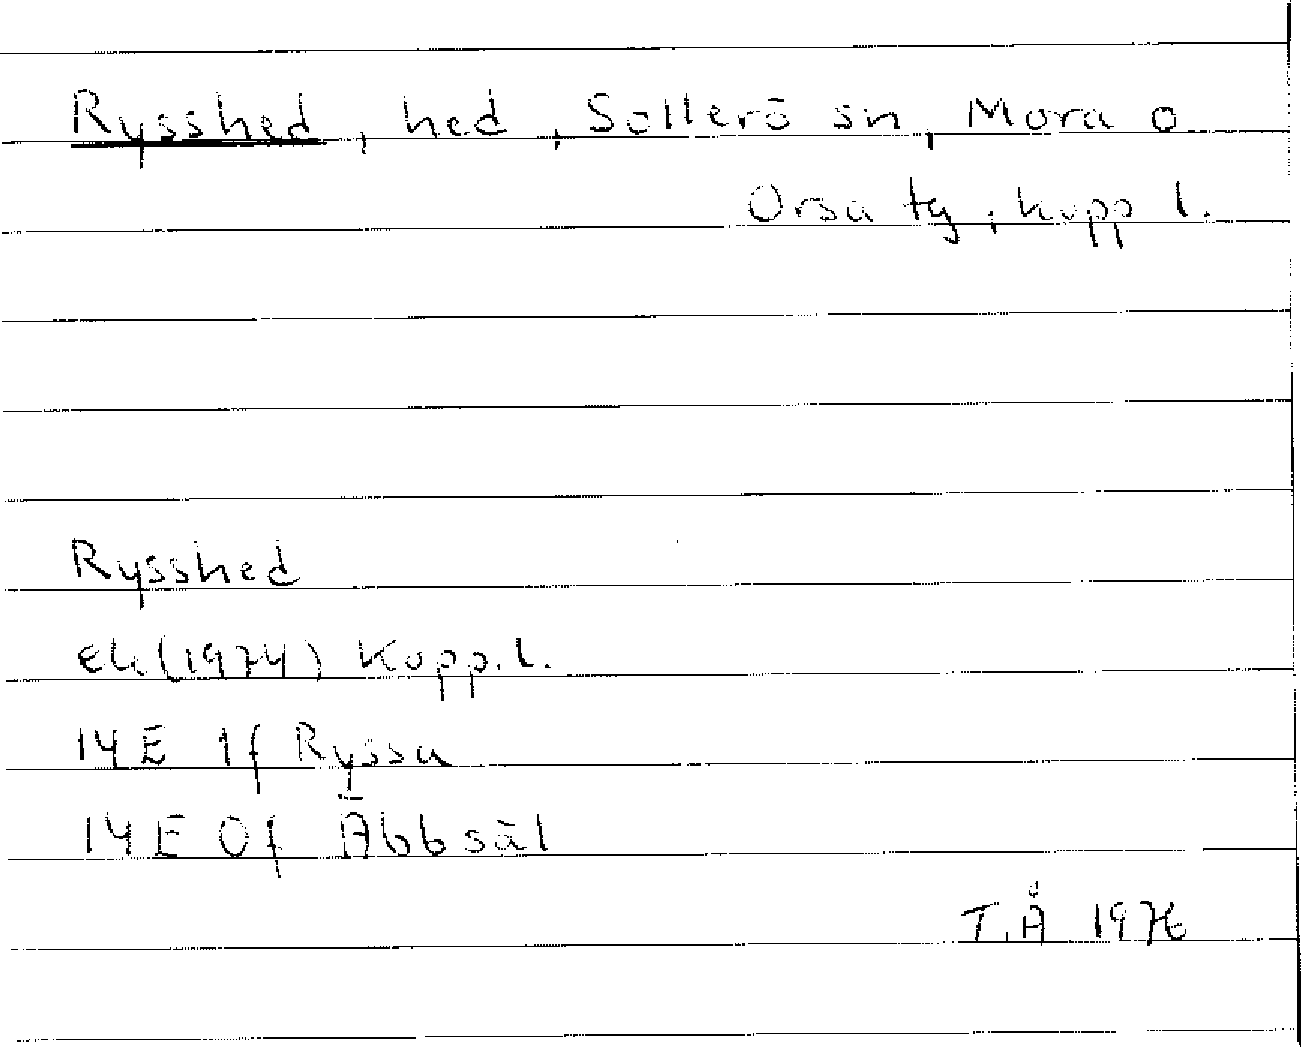 Rysshed, hed, Sollerö sn, Mora o
Orsa tg, Kopp l.
Rysshed
Ek (1974) Kopp.l.
14E 1f Ryssa
14E 0f Äbbsäl
T.Å 1976